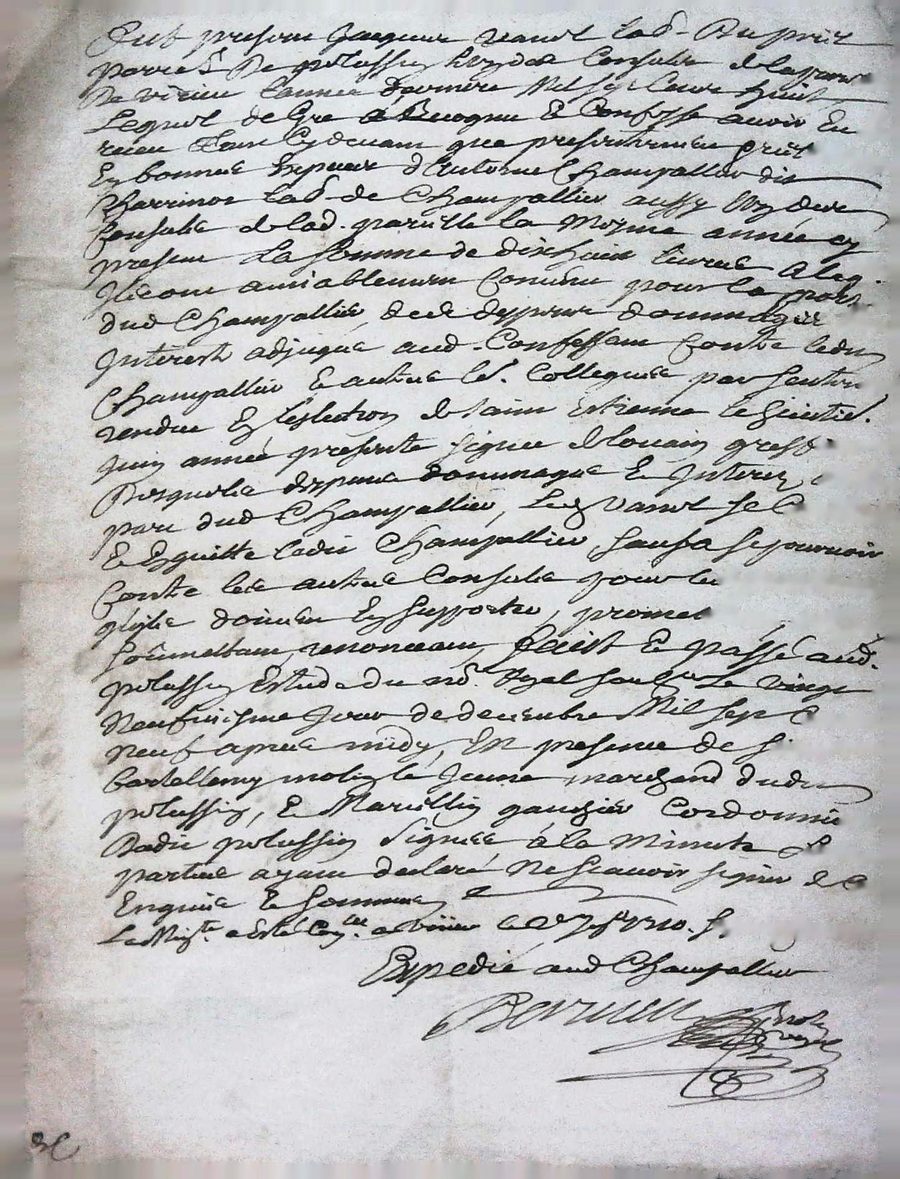 Fut present Jacques vanol lab. du
parrois. De polussin hyder Consulz de la parr
De virieu l'année dernière Mil sept Cents huict
Lequel de Gré a Recognu et Confesse avoir Eu
receu tant Cydevant que presentement
En bonnes d'Antoine Champallier dit
Charrinol lab. de Champallier aussy hyder
Consulz de lad. parroisse la mesme année cy
present La somme de dixhuict livres A laq.
Ils ont amiablement Convenu pour la part
dud Champallier, de de despens dommages
Interests adjugés aud. Confessant Contre ledit
Champallier et autres ses Collegues par sentence
rendue En l'eslection de saint Estienne le
Juin année presente signée
Desquels despens dommages et Interez
part dud Champallier, Led vanol se
Et En quitte ledit Champallier sauf a se pourvoir
Contre les autres Consulz pour les
qu'ils doivent En supporter, promet
soumettant, renonceant, faict et passé aud.
polussin Estude du no.e Royal soub.né Le vingt
Neufviesme jour de decembre Mil sept C
Neuf apres midy, En presence de s.
Bartellemy molin le Jeune marchand dudit
polussin, et Marcellin gauthier Cordonnier
Dudit polussin signés à la Minute
parties ayant declaré Ne scavoir signer de ce
Enquises et sommées
La Min.te a Esté Con.llée a virieu le 7 1710.
Expedié aud Champallier